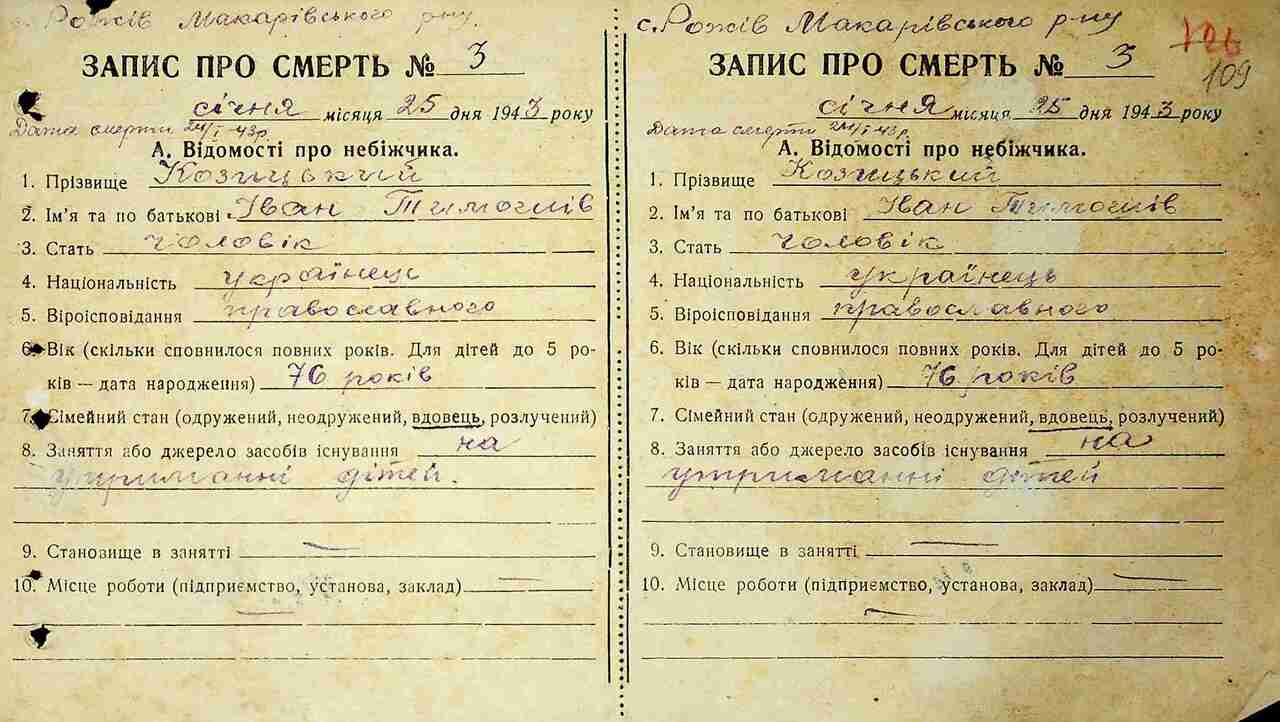 с. Рожів Макарівського р-ну
ЗАПИС ПРО СМЕРТЬ № 3
січня місяця 25 дня 1943 року
Дата смерти 24/I-43р.
А. Відомості про небіжчика.
1. Прізвище Козицький
2. Ім'я та по батькові Іван Тимошів
3. Стать чоловік
4. Національність українець
5. Віроісповідання православного
6. Вік (скільки сповнилося повних років. Для дітей до 5 ро-
ків — дата народження) 76 років
7. Сімейний стан (одружений, неодружений, вдовець, розлучений)
8. Заняття або джерело засобів існування на
утриманні дітей.
9. Становище в занятті —
10. Місце роботи (підприємство, установа, заклад) —
—
с. Рожів Макарівського р-ну
126
109
ЗАПИС ПРО СМЕРТЬ № 3
січня місяця 25 дня 1943 року
Дата смерти 24/I-43р.
А. Відомості про небіжчика.
1. Прізвище Козицький
2. Ім'я та по батькові Іван Тимошів
3. Стать чоловік
4. Національність українець
5. Віроісповідання православного
6. Вік (скільки сповнилося повних років. Для дітей до 5 ро-
ків — дата народження) 76 років
7. Сімейний стан (одружений, неодружений, вдовець, розлучений)
8. Заняття або джерело засобів існування на
утриманні дітей
9. Становище в занятті —
10. Місце роботи (підприємство, установа, заклад) —
—